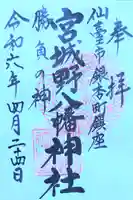 奉拝
仙臺市銀杏町鎮座
宮城野八幡神社
勝負の神
令和六年四月二十四日